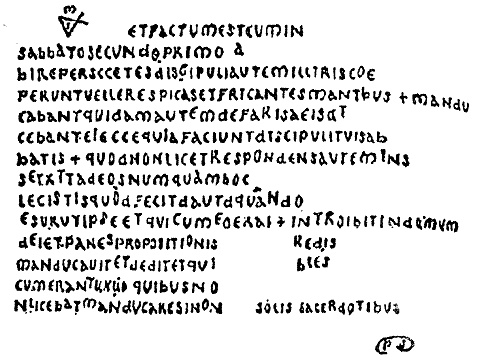 ETFACTUMESTCUMIN
SABBATOSECUNdOPRIMO A
bIREPERSCCETESdISGIPULIAUTEMILLIRISCOE
PERUNTUELLERESPICASETFRICANTESMANTbUS + MANdU
CABANTQUIdAMAUTEMdEFARISAEISdT
CEBANTEIECCEQUIAFACIUNTdTSCIPULITUISAb
bATIS + QUOdNONLICETRESPONdENSAUTEMINS
SETXTTAdEOSNUMQUAMbOC
LECISTISQUOdFECITdAUTdQUANdO
ESURUTIPSEETQUICUMEOERAI + INTROIBITINdOMUM
dEIETPANESPROPOSITIONIS REdIS
MANdUCAUITETdEdITETQUI bLES
CUMERANTUXUO QUIBUSNO
NLICEbATMANdUCARESINON SOLIS SACERdOTIbUS
PS